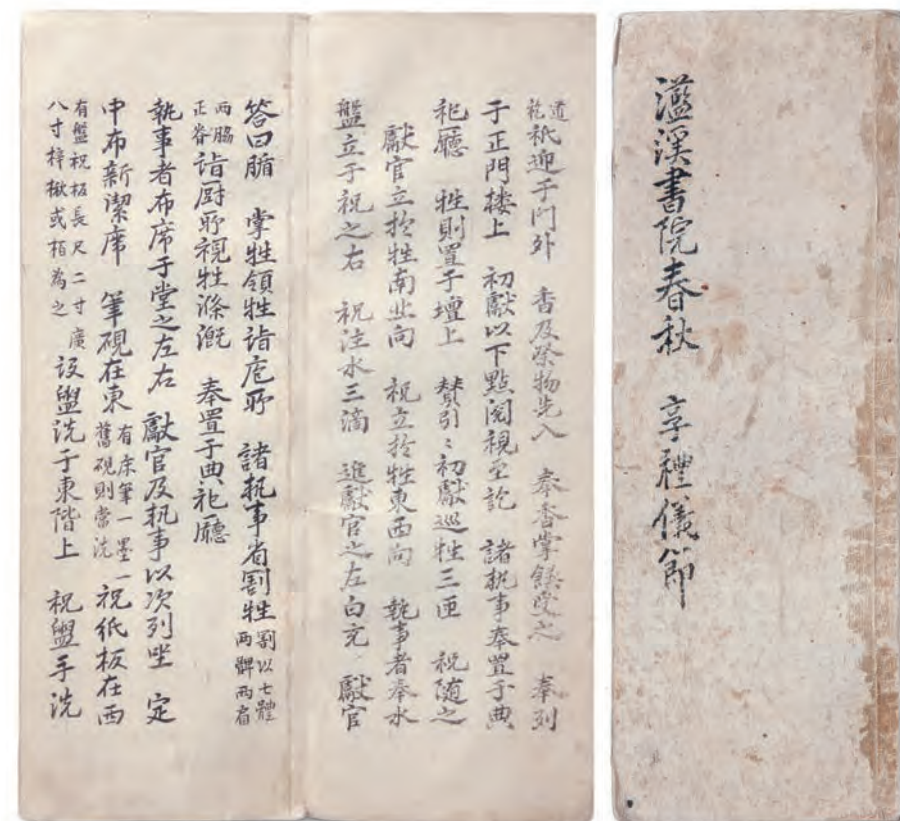 灆溪書院春秋 享禮儀節
道袍祗迎于門外 香及祭物先入 奉香掌饌受之 奉列
于正門楼上 初獻以下點閱視至訖 諸執事奉置于典
祀廳 牲則置于壇上 賛引〻初獻巡牲三匝 祝随之
獻官立於牲南北向 祝立於牲東西向 執事者奉水
盤立于祝之右 祝注水三滴 進獻官之左白充 獻官
答曰腯 掌牲領牲詣庖所 諸執事省割牲 割以七體兩髀兩肩
兩脇正脊 詣厨所視牲滌漑 奉置于典祀廳
執事者布席于堂之左右 獻官及執事以次列坐 定
中布新潔席 筆硯在東 有床筆一墨一舊硯則常洗 祝紙板在西
有盤祝板長尺二寸廣八寸梓楸或栢為之 設盥洗于東階上 祝盥手洗